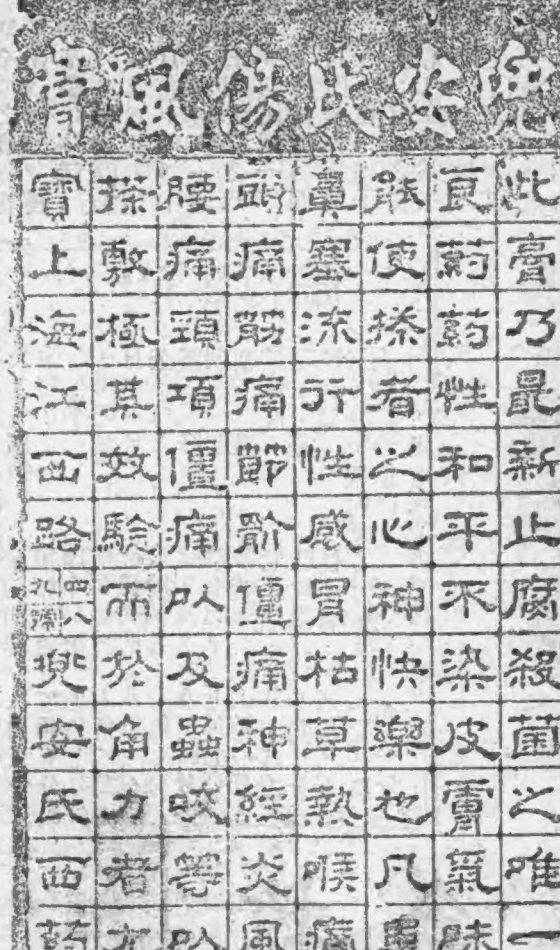 兜安氏傷風膏
此膏乃最新止腐殺菌之唯一
良葯葯性和平不染皮膚氣味
能使搽者之心神快樂也凡患
鼻塞流行性感冒枯草熱喉痛
頭痛筋痛節骱僵痛神經炎風
腰痛頸項僵痛以及蟲咬等以
搽敷極其效驗而於角力者尤
寶上海江西路四八九號兜安氏西葯